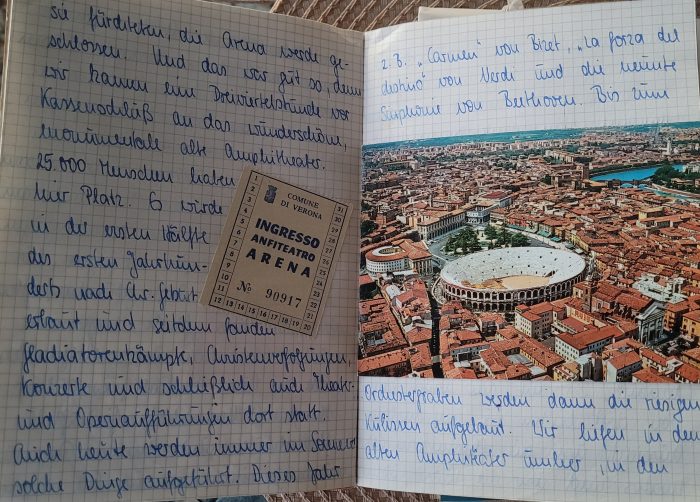 sie fürchteten, die Arena werde ge-
schlossen. Und das war gut so, denn
wir kamen eine Dreiviertelstunde vor
Kassenschluß an das wunderschöne,
monumentale alte Amphitheater.
25.000 Menschen haben
hier Platz. Es wurde
in der ersten Hälfte
des ersten Jahrhun-
derts nach Chr. Geburt
erbaut und seitdem fanden
Gladiatorenkämpfe, Christenverfolgungen,
Konzerte und schließlich auch Theater-
und Opernaufführungen dort statt.
Auch heute werden immer im Sommer
solche Dinge aufgeführt. Dieses Jahr
COMUNE
DI VERONA
INGRESSO
ANFITEATRO
ARENA
No 90917
1
2
3
4
5
6
7
8
9
10
11
12 13 14 15 16 17 18 19 20
21
22
23
24
25
26
27
28
29
30
31
z.B. „Carmen" von Bizet, „La forza del
destino" von Verdi und die neunte
Sinphonie von Beethoven. Bis zum
Orchestergraben werden dann die riesigen
Kulissen aufgebaut. Wir liefen in dem
alten Amphitheater umher, in den